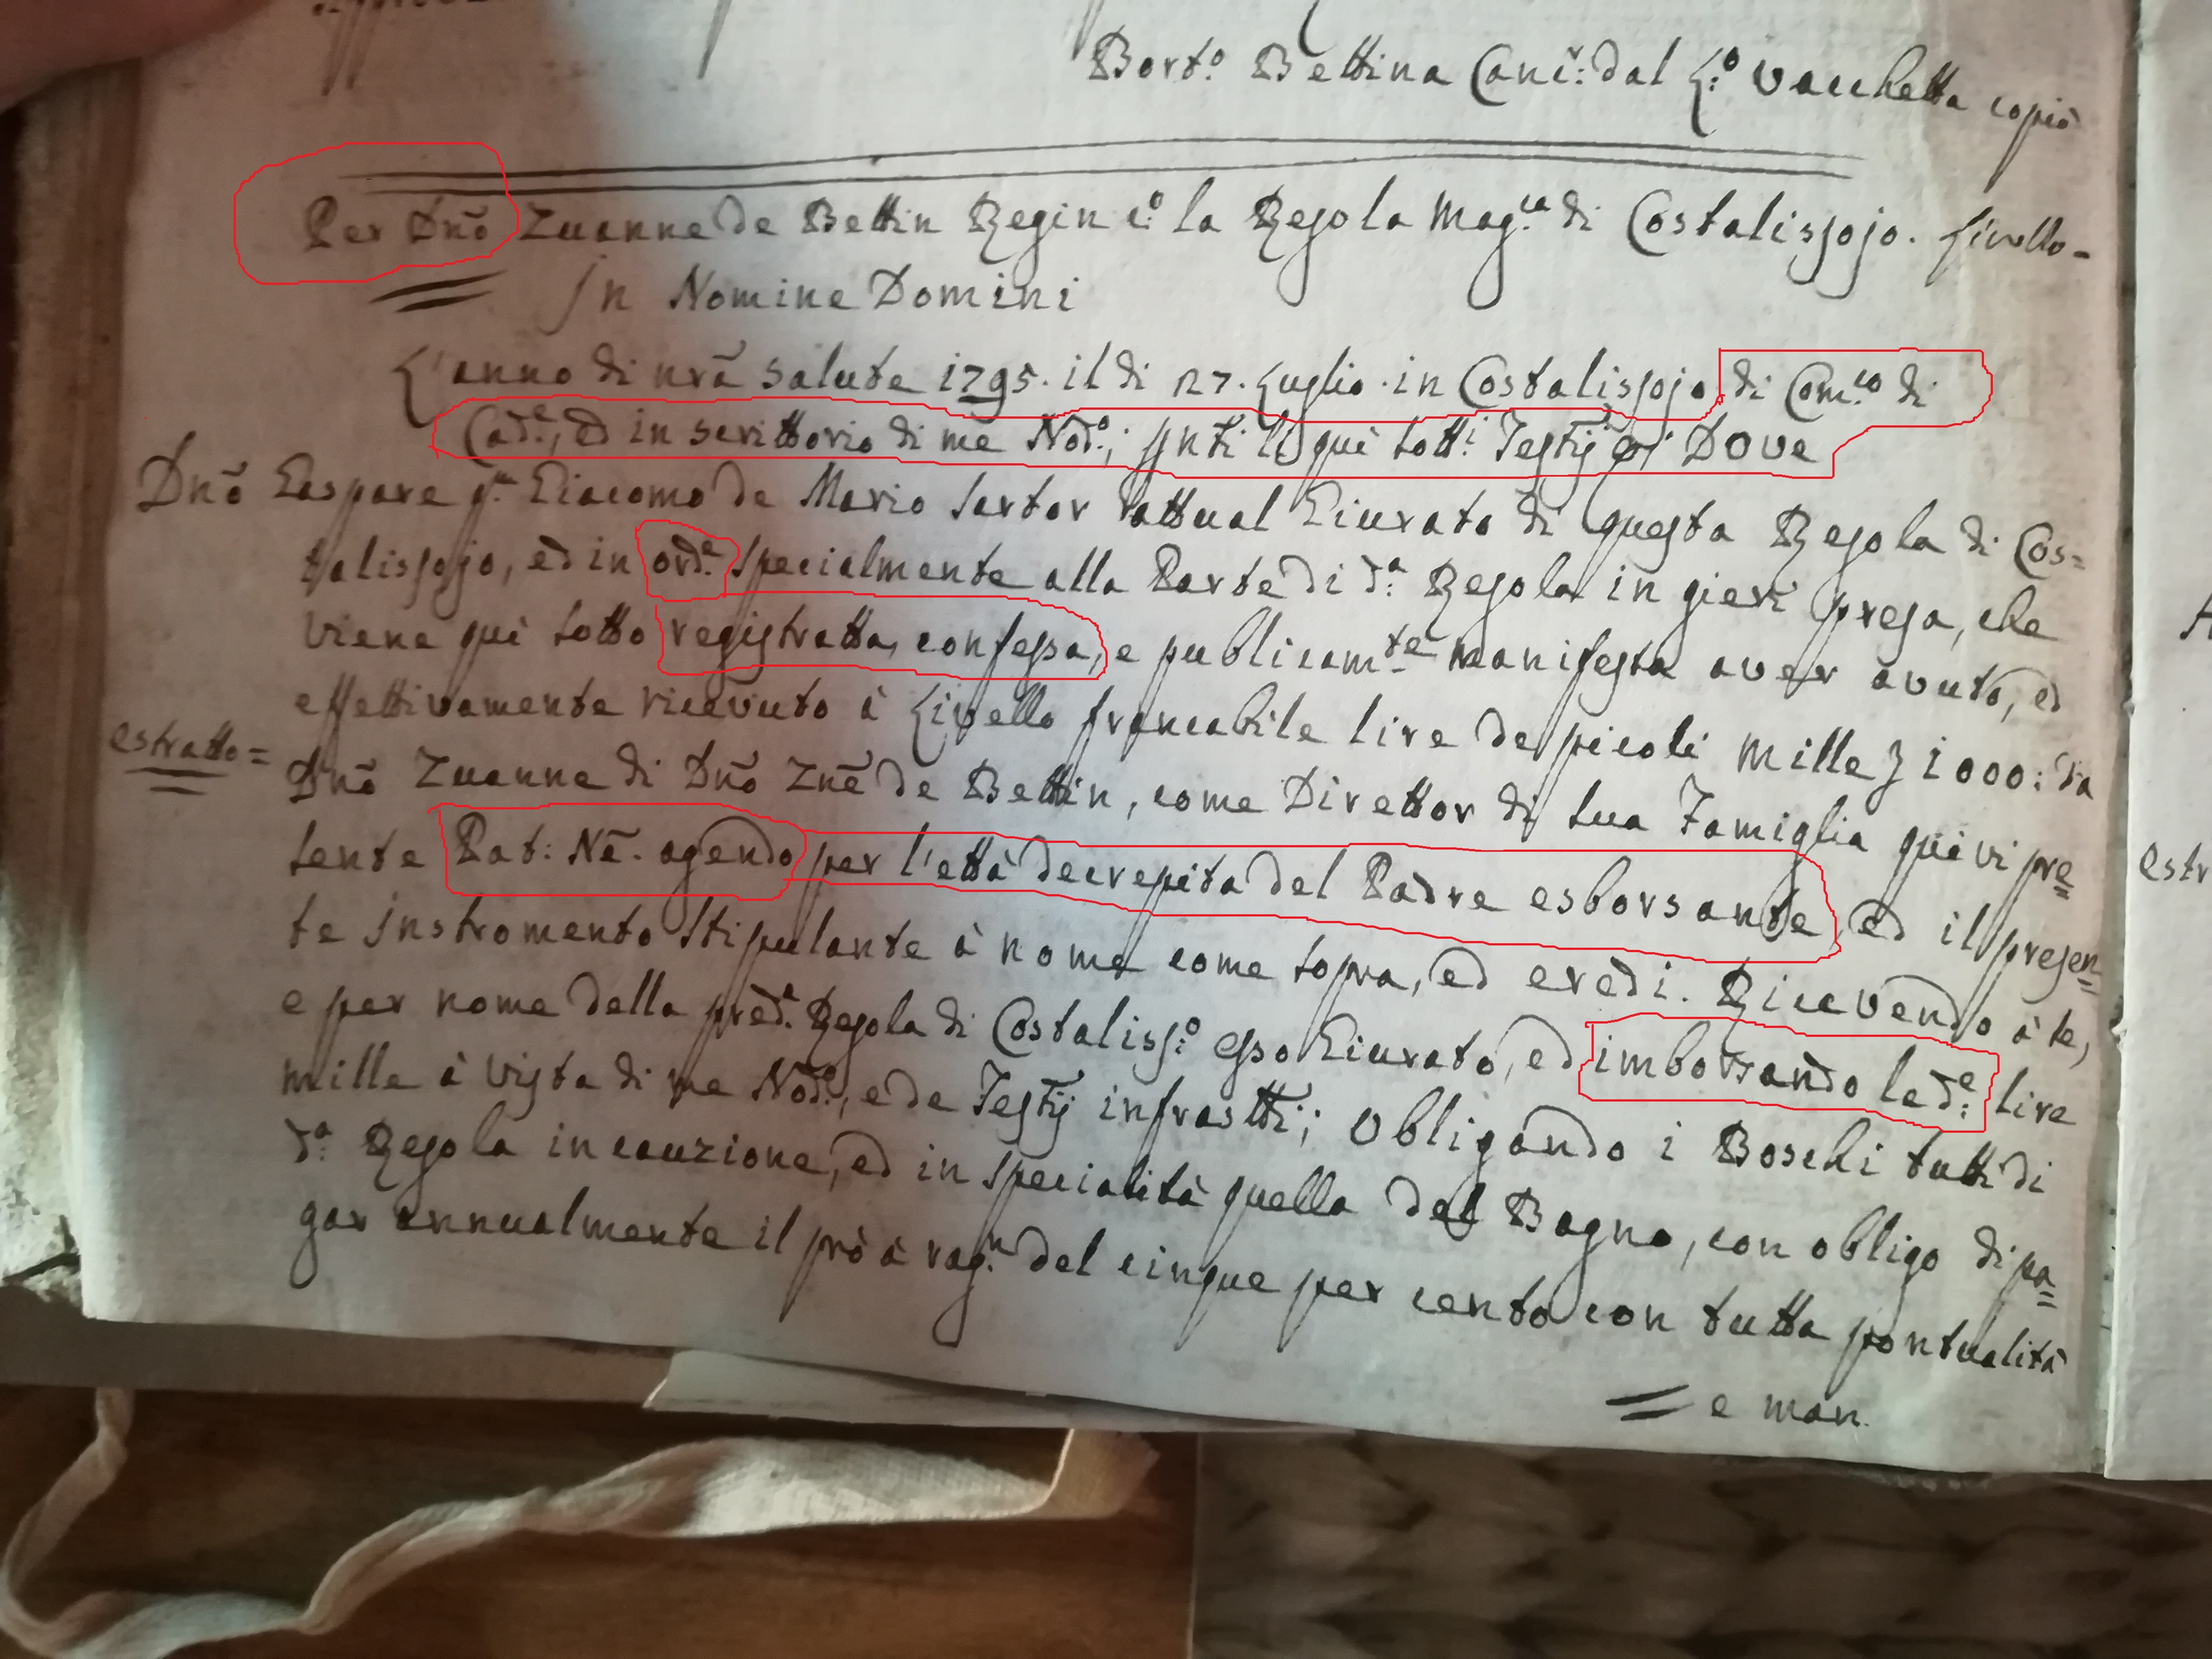 Bort.o Bettina Canc.r dal L.o Vacchetta copiò
Per Dnõ Zuanne de Bettin Regin c.o la Regola Mag.ca di Costalissojo. livello=
In Nomine Domini
L'anno di nrã salute 1795. il di 27. Luglio. in Costalissojo di Com.co di
Cad.e, ed in scrittorio di me Nod.o; pnti li quì sott.i Testij &. Dove
Dnõ Gaspare q.m Giacomo de Mario Sartor l'attual Giurato di questa Regola di Cos=
talissojo, ed in ord.e specialmente alla Parte di d.a Regola in gieri presa, che
viene quì sotto registratta, confessa, e publicam.te manifesta aver avuto, ed
effettivamente ricevuto à Livello francabile lire de piccoli mille L 1000: da
estratto=
Dnõ Zuanne di Dnõ Znẽ de Bettin, come Direttor di sua Famiglia quivi pre=
sente Pat: Nẽ. agendo per l'ettà decrepita del Padre esborsante, ed il presen=
te instromento stipulante à nome come sopra, ed eredi. Ricevendo à se,
e per nome della pred.a Regola di Costaliss.o esso Giurato, ed imborsando le d.e lire
mille à vista di me Nod.o, e de Testij infrastti; Obligando i Boschi tutti di
d.a Regola in cauzione, ed in specialità quello del Bagno, con obligo di pa=
gar annualmente il prò à rag.n del cinque per cento con tutta pontualità
= e man.
estr